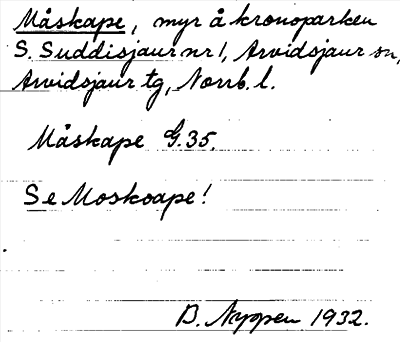 Måskape, myr å kronoparken
S. Suddisjaur nr 1, Arvidsjaur sn,
Arvidsjaur tg, Norrb. l.
Måskape G.35.
Se Moskoape!
B. Nyppen 1932.